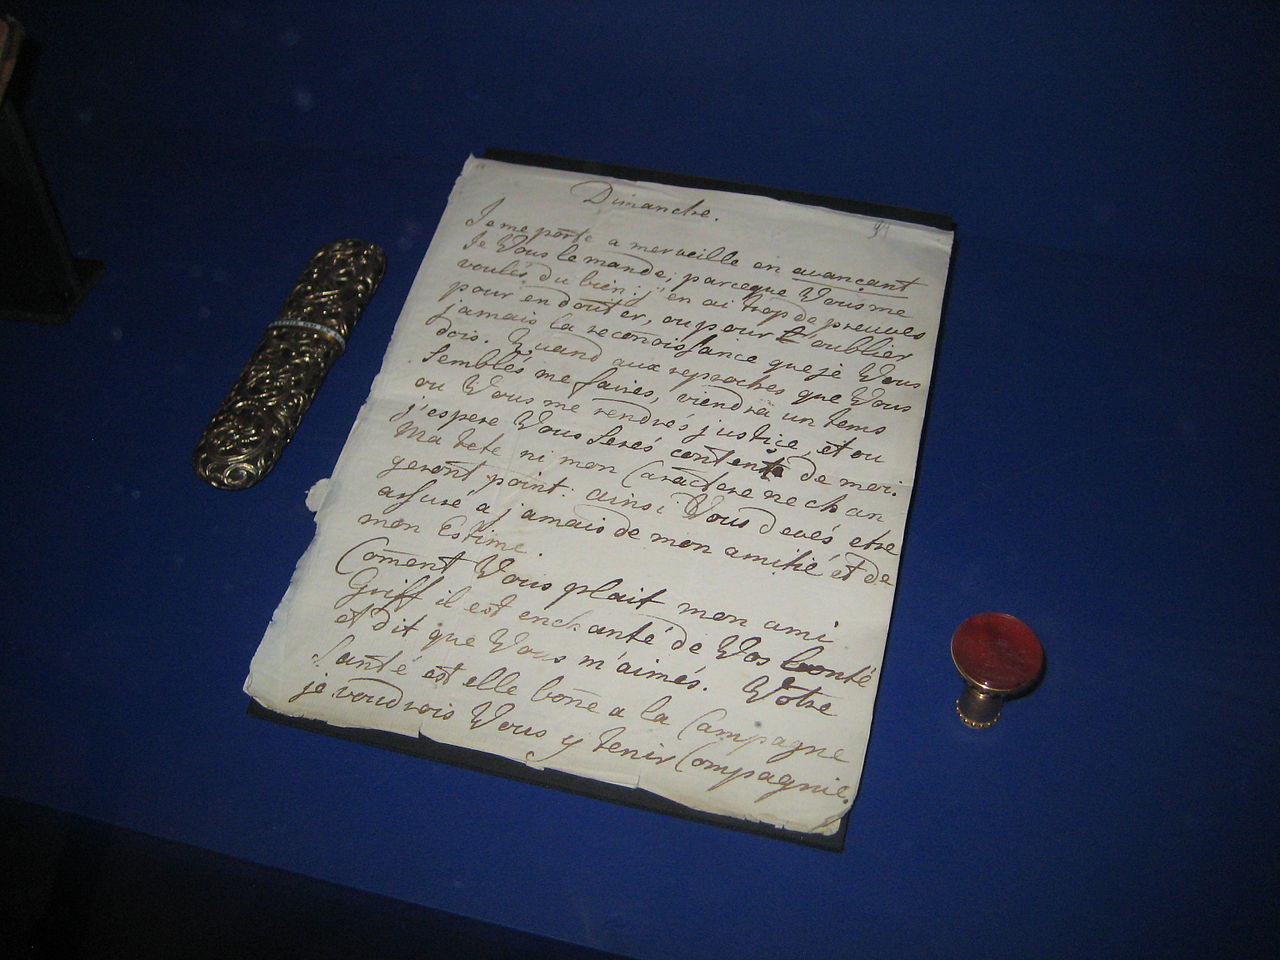 Dimanche.
Je me porte a merveille en avançant
Je Vous le mande, parceque Vous me
voulés du bien: j'en ai trop de preuves
pour en douter, ou pour oublier
jamais la reconoissance que je Vous
dois. Quand aux reproches que Vous
Semblés me faires, viendra un tems
ou Vous me rendrés justice, et ou
j'espere Vous Serés contente de moi.
Ma tete ni mon Caractere ne chan
geront point: ainsi Vous devés etre
assuré a jamais de mon amitié et de
mon Estime.
Coment Vous plait mon ami
Griff il est enchanté de Vos bonté
et dit que Vous m'aimés. Votre
Santé est elle bone a la Campagne
je voudrois Vous y tenir Compagnie.